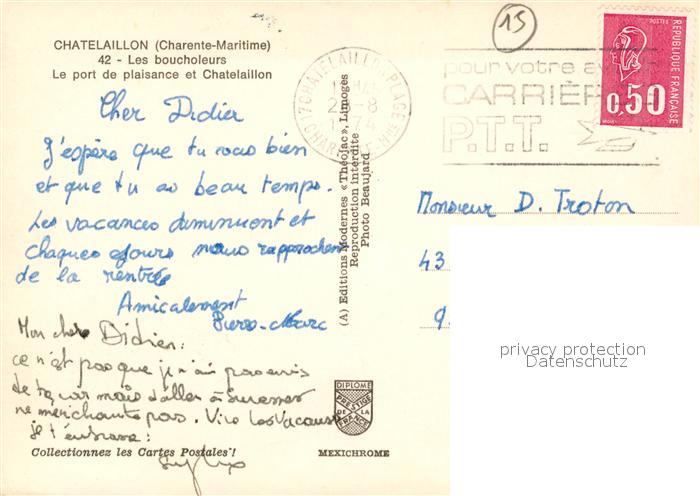 15
CHATELAILLON (Charente-Maritime)
42 - Les boucholeurs
Le port de plaisance et Chatelaillon
Cher Didier
J'espère que tu vas bien
et que tu as beau temps.
Les vacances diminuent et
chaques jours nous rapprochent
de la rentrée
Amicalement
Pierre-Marc
Mon cher Didier :
ce n'est pas que je n'ai pas envie
de te car mais d'aller à Suresnes
ne m'enchante pas. Vive les Vacances
je t'embrasse :
Collectionnez les Cartes Postales !
(A) Editions Modernes « Théojac », Limoges
Reproduction interdite
Photo Beaujard
DIPLOME
PRESTIGE
DE LA
FRANCE
MEXICHROME
17 CHATELAILLON PLAGE
-8
1974
pour votre
CARRIÈRE
P.T.T.
POSTES
REPUBLIQUE FRANÇAISE
0,50
Monsieur D. Troton
43
9
privacy protection
Datenschutz